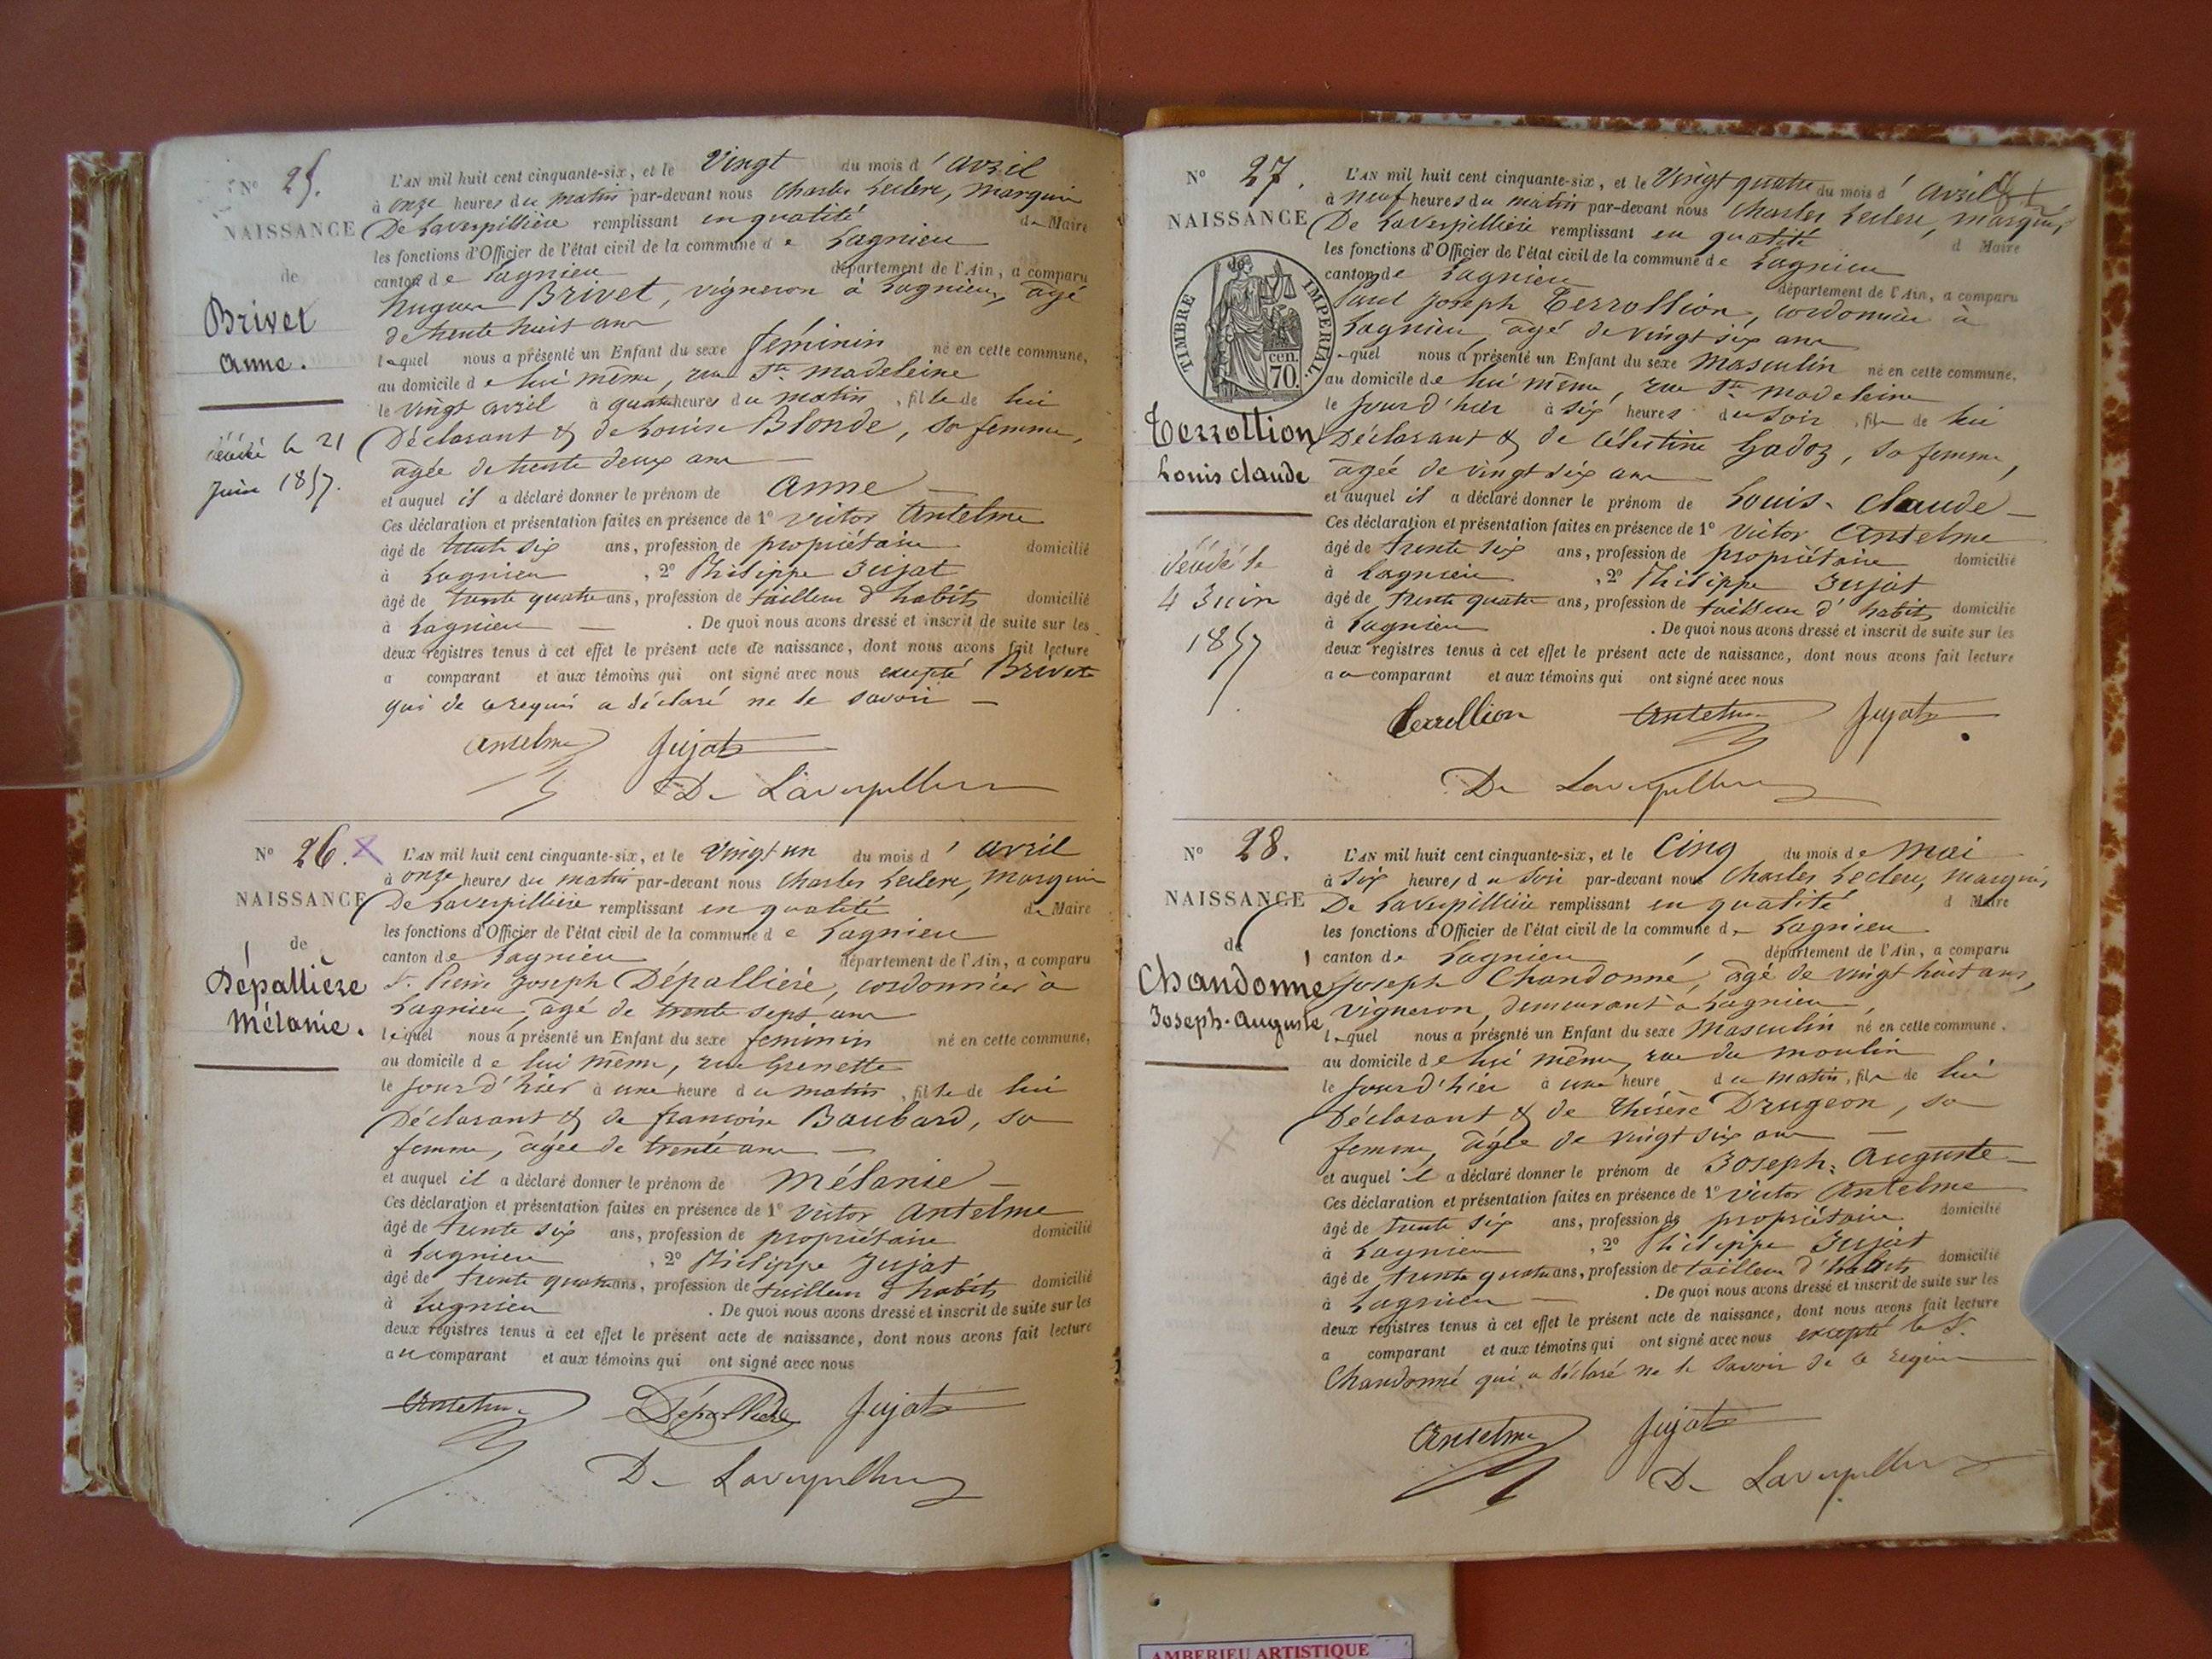 N° 25.
NAISSANCE
de
Brivet
Anne.
décédée le 21
Juin 1857.
L'AN mil huit cent cinquante-six, et le Vingt du mois d'avril
à onze heures du matin par-devant nous Charles Leclerc, marquis
De Laverpillière remplissant en qualité de Maire
les fonctions d'Officier de l'état civil de la commune de Lagnieu
canton de Lagnieu département de l'Ain, a comparu
hugues Brivet, vigneron à Lagnieu, agé
de trente huit ans
lequel nous a présenté un Enfant du sexe féminin né en cette commune,
au domicile de lui même, rue Ste madeleine
le vingt avril à quatre heures du matin, fille de lui
Déclarant & de Louise Blonde, sa femme,
agée de trente deux ans
et auquel il a déclaré donner le prénom de Anne
Ces déclaration et présentation faites en présence de 1° Victor Antelme
âgé de trente six ans, profession de propriétaire domicilié
à Lagnieu, 2° Philippe Jujat
âgé de trente quatre ans, profession de tailleur d'habits domicilié
à Lagnieu. De quoi nous avons dressé et inscrit de suite sur les
deux registres tenus à cet effet le présent acte de naissance, dont nous avons fait lecture
a comparant et aux témoins qui ont signé avec nous excepté Brivet
qui de ce requis a déclaré ne le savoir
Antelme Jujat
De Laverpilliere
N° 26.
NAISSANCE
de
Dépallière
Mélanie.
L'AN mil huit cent cinquante-six, et le Vingt un du mois d'avril
à onze heures du matin par-devant nous Charles Leclerc, marquis
De Laverpillière remplissant en qualité de Maire
les fonctions d'Officier de l'état civil de la commune de Lagnieu
canton de Lagnieu département de l'Ain, a comparu
Sr. Pierre Joseph Dépallière, cordonnier à
Lagnieu, agé de trente sept ans
lequel nous a présenté un Enfant du sexe feminin né en cette commune,
au domicile de lui même, rue Grenette
le jour d'hier à une heure du matin, fille de lui
Déclarant & de françoise Baubard, sa
femme, agée de trente ans
et auquel il a déclaré donner le prénom de Mélanie
Ces déclaration et présentation faites en présence de 1° Victor Antelme
âgé de trente six ans, profession de propriétaire domicilié
à Lagnieu, 2° Philippe Jujat
âgé de trente quatre ans, profession de tailleur d'habits domicilié
à Lagnieu. De quoi nous avons dressé et inscrit de suite sur les
deux registres tenus à cet effet le présent acte de naissance, dont nous avons fait lecture
au comparant et aux témoins qui ont signé avec nous
Antelme Dépallière Jujat
De Laverpilliere
N° 27.
NAISSANCE
TIMBRE IMPERIAL.
70 cen.
Terrollion
Louis Claude
décédé le
4 Juin
1857
L'AN mil huit cent cinquante-six, et le Vingt quatre du mois d'avril
à neuf heures du matin par-devant nous Charles Leclerc, marquis
De Laverpillière remplissant en qualité d Maire
les fonctions d'Officier de l'état civil de la commune de Lagnieu
canton de Lagnieu département de l'Ain, a comparu
Paul Joseph Terrollion, cordonnier à
Lagnieu, agé de vingt six ans
lequel nous a présenté un Enfant du sexe Masculin né en cette commune,
au domicile de lui même, rue Ste madeleine
le jour d'hier à six heures du soir, fils de lui
Déclarant & de Célestine Gadoz, sa femme,
agée de vingt six ans
et auquel il a déclaré donner le prénom de Louis-Claude
Ces déclaration et présentation faites en présence de 1° Victor Antelme
âgé de trente six ans, profession de propriétaire domicilié
à Lagnieu, 2° Philippe Jujat
âgé de trente quatre ans, profession de tailleur d'habits domicilié
à Lagnieu. De quoi nous avons dressé et inscrit de suite sur les
deux registres tenus à cet effet le présent acte de naissance, dont nous avons fait lecture
au comparant et aux témoins qui ont signé avec nous
Terrollion Antelme Jujat
De Laverpilliere
N° 28.
NAISSANCE
de
Chandonné
Joseph-Auguste
L'AN mil huit cent cinquante-six, et le Cinq du mois de mai
à six heures du soir par-devant nous Charles Leclerc, marquis
De Laverpillière remplissant en qualité d Maire
les fonctions d'Officier de l'état civil de la commune de Lagnieu
canton de Lagnieu département de l'Ain, a comparu
Joseph Chandonné, agé de vingt huit ans,
vigneron, demeurant à Lagnieu
lequel nous a présenté un Enfant du sexe Masculin né en cette commune,
au domicile de lui même, rue du moulin
le jour d'hier à une heure du matin, fils de lui
Déclarant & de Thérèse Drugeon, sa
femme, agée de vingt six ans
et auquel il a déclaré donner le prénom de Joseph-Auguste
Ces déclaration et présentation faites en présence de 1° Victor Antelme
âgé de trente six ans, profession de propriétaire domicilié
à Lagnieu, 2° Philippe Jujat
âgé de trente quatre ans, profession de tailleur d'habits domicilié
à Lagnieu. De quoi nous avons dressé et inscrit de suite sur les
deux registres tenus à cet effet le présent acte de naissance, dont nous avons fait lecture
a comparant et aux témoins qui ont signé avec nous excepté le Sr.
Chandonné qui a déclaré ne le savoir de ce requis
Antelme Jujat
De Laverpilliere
AMBERIEU ARTISTIQUE